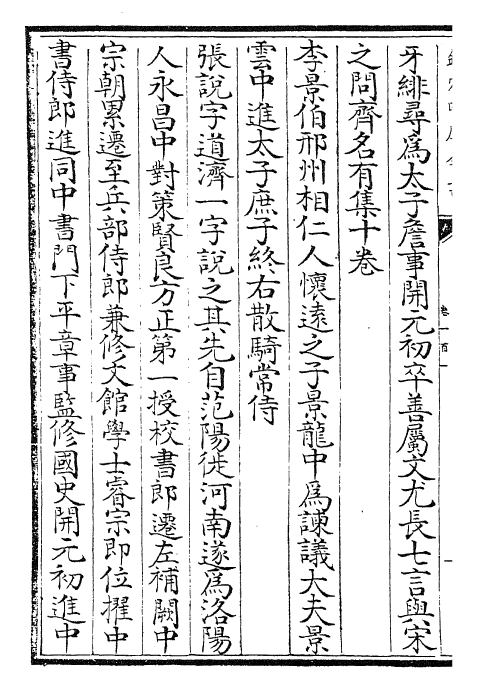 牙緋尋爲太子詹事開元初卒善屬文尤長七言與宋
之問齊名有集十卷
李景伯邢州相仁人懷遠之子景龍中爲諫議大夫景
雲中進太子庶子終右散騎常侍
張說字道濟一字說之其先自范陽徙河南遂爲洛陽
人永昌中 對策賢良方正第一授校書郎遷左補闕中
宗朝累遷至兵部侍郎兼修文館學士睿宗即位擢中
書侍郎進同中書門下平章事監修國史開元初進中